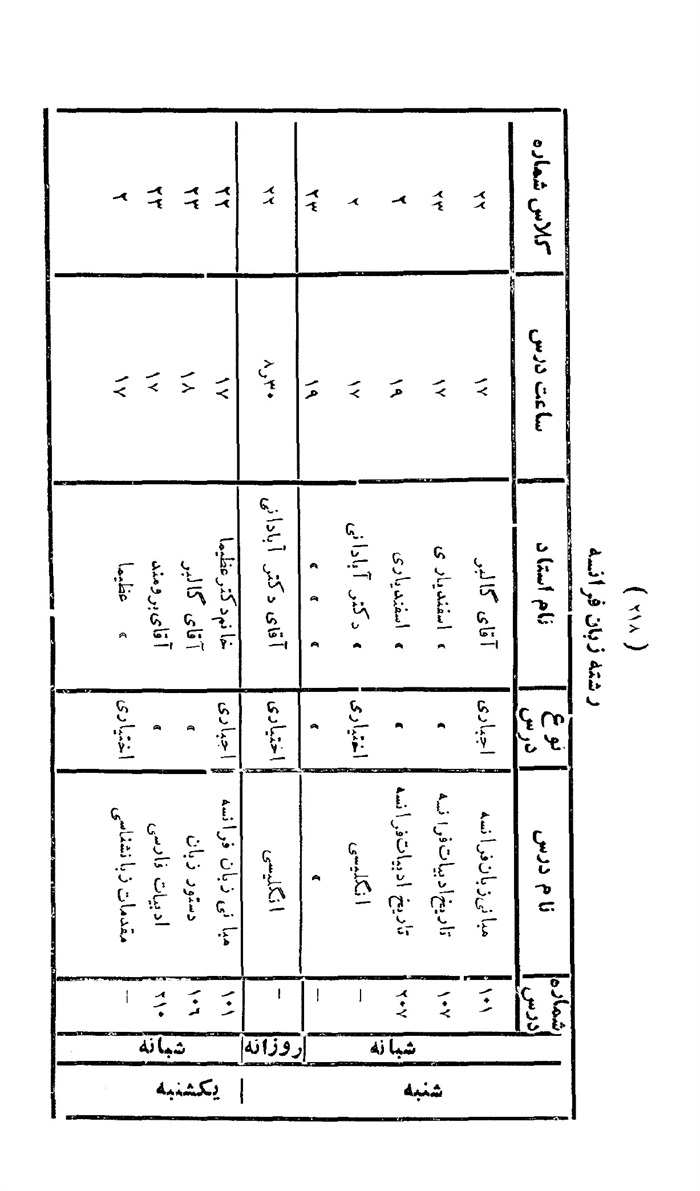 ( ۲۱۸ )
رشته زبان فرانسه
شماره درس نام درس نوع درس نام استاد ساعت درس کلاس شماره
شنبه
شبانه
۱۰۱ مبانی زبان فرانسه اجباری آقای گالبر ۱۷ ۲۲
۱۰۷ تاریخ ادبیات فرانسه » » اسفندیاری ۱۷ ۲۳
۲۰۷ تاریخ ادبیات فرانسه » » اسفندیاری ۱۹ ۲
— انگلیسی اختیاری » دکتر آبادانی ۱۷ ۲
— » » » » » ۱۹ ۲۳
روزانه
— انگلیسی اختیاری آقای دکتر آبادانی ۸ر۳۰ ۲۲
یکشنبه
شبانه
۱۰۱ مبانی زبان فرانسه اجباری خانم دکتر عظیما ۱۷ ۲۲
۱۰۶ دستور زبان » آقای گالبر ۱۸ ۲۳
۲۱۰ ادبیات فارسی » آقای برومند ۱۷ ۲۳
— مقدمات زبانشناسی اختیاری » عظیما ۱۷ ۲